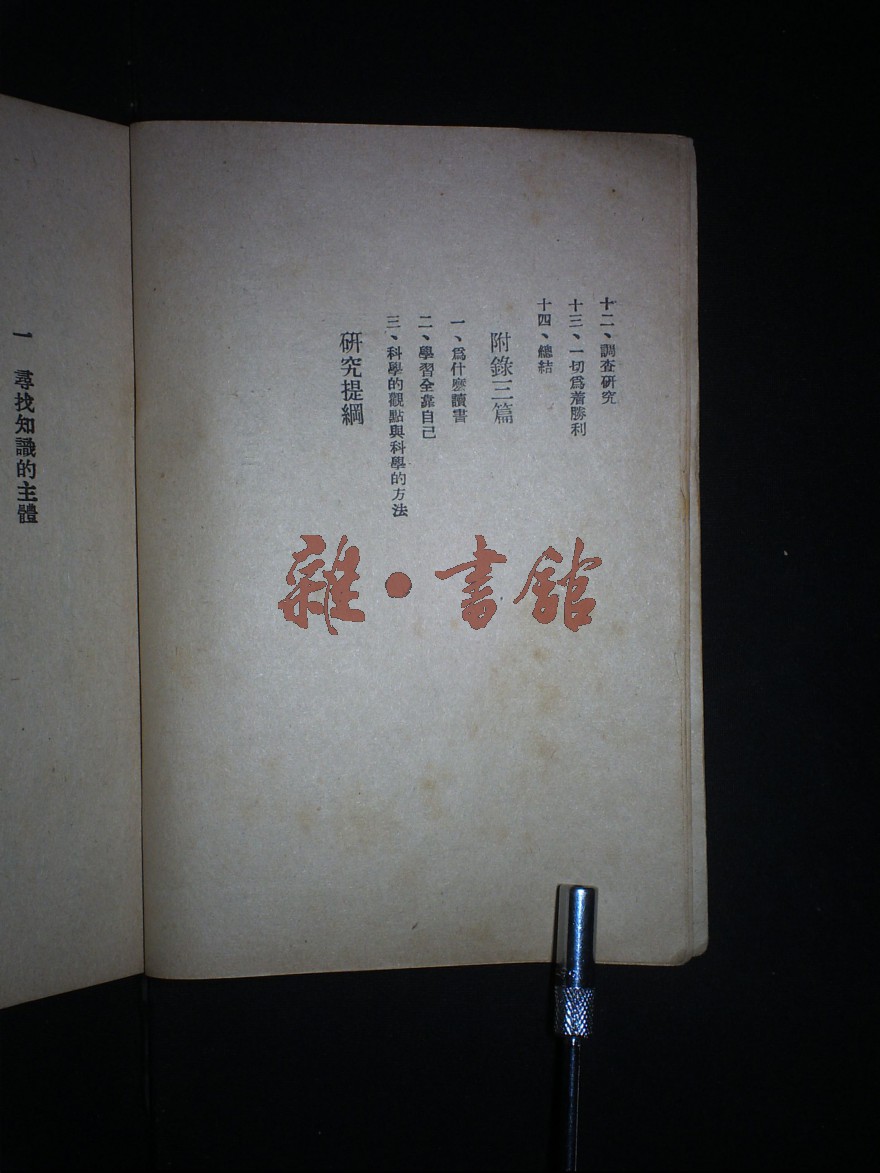 十二、調查研究
十三、一切爲着勝利
十四、總結
附錄三篇
一、爲什麽讀書
二、學習全靠自己
三、科學的觀點與科學的方法
研究提綱
一 尋找知識的主體
雜·書館